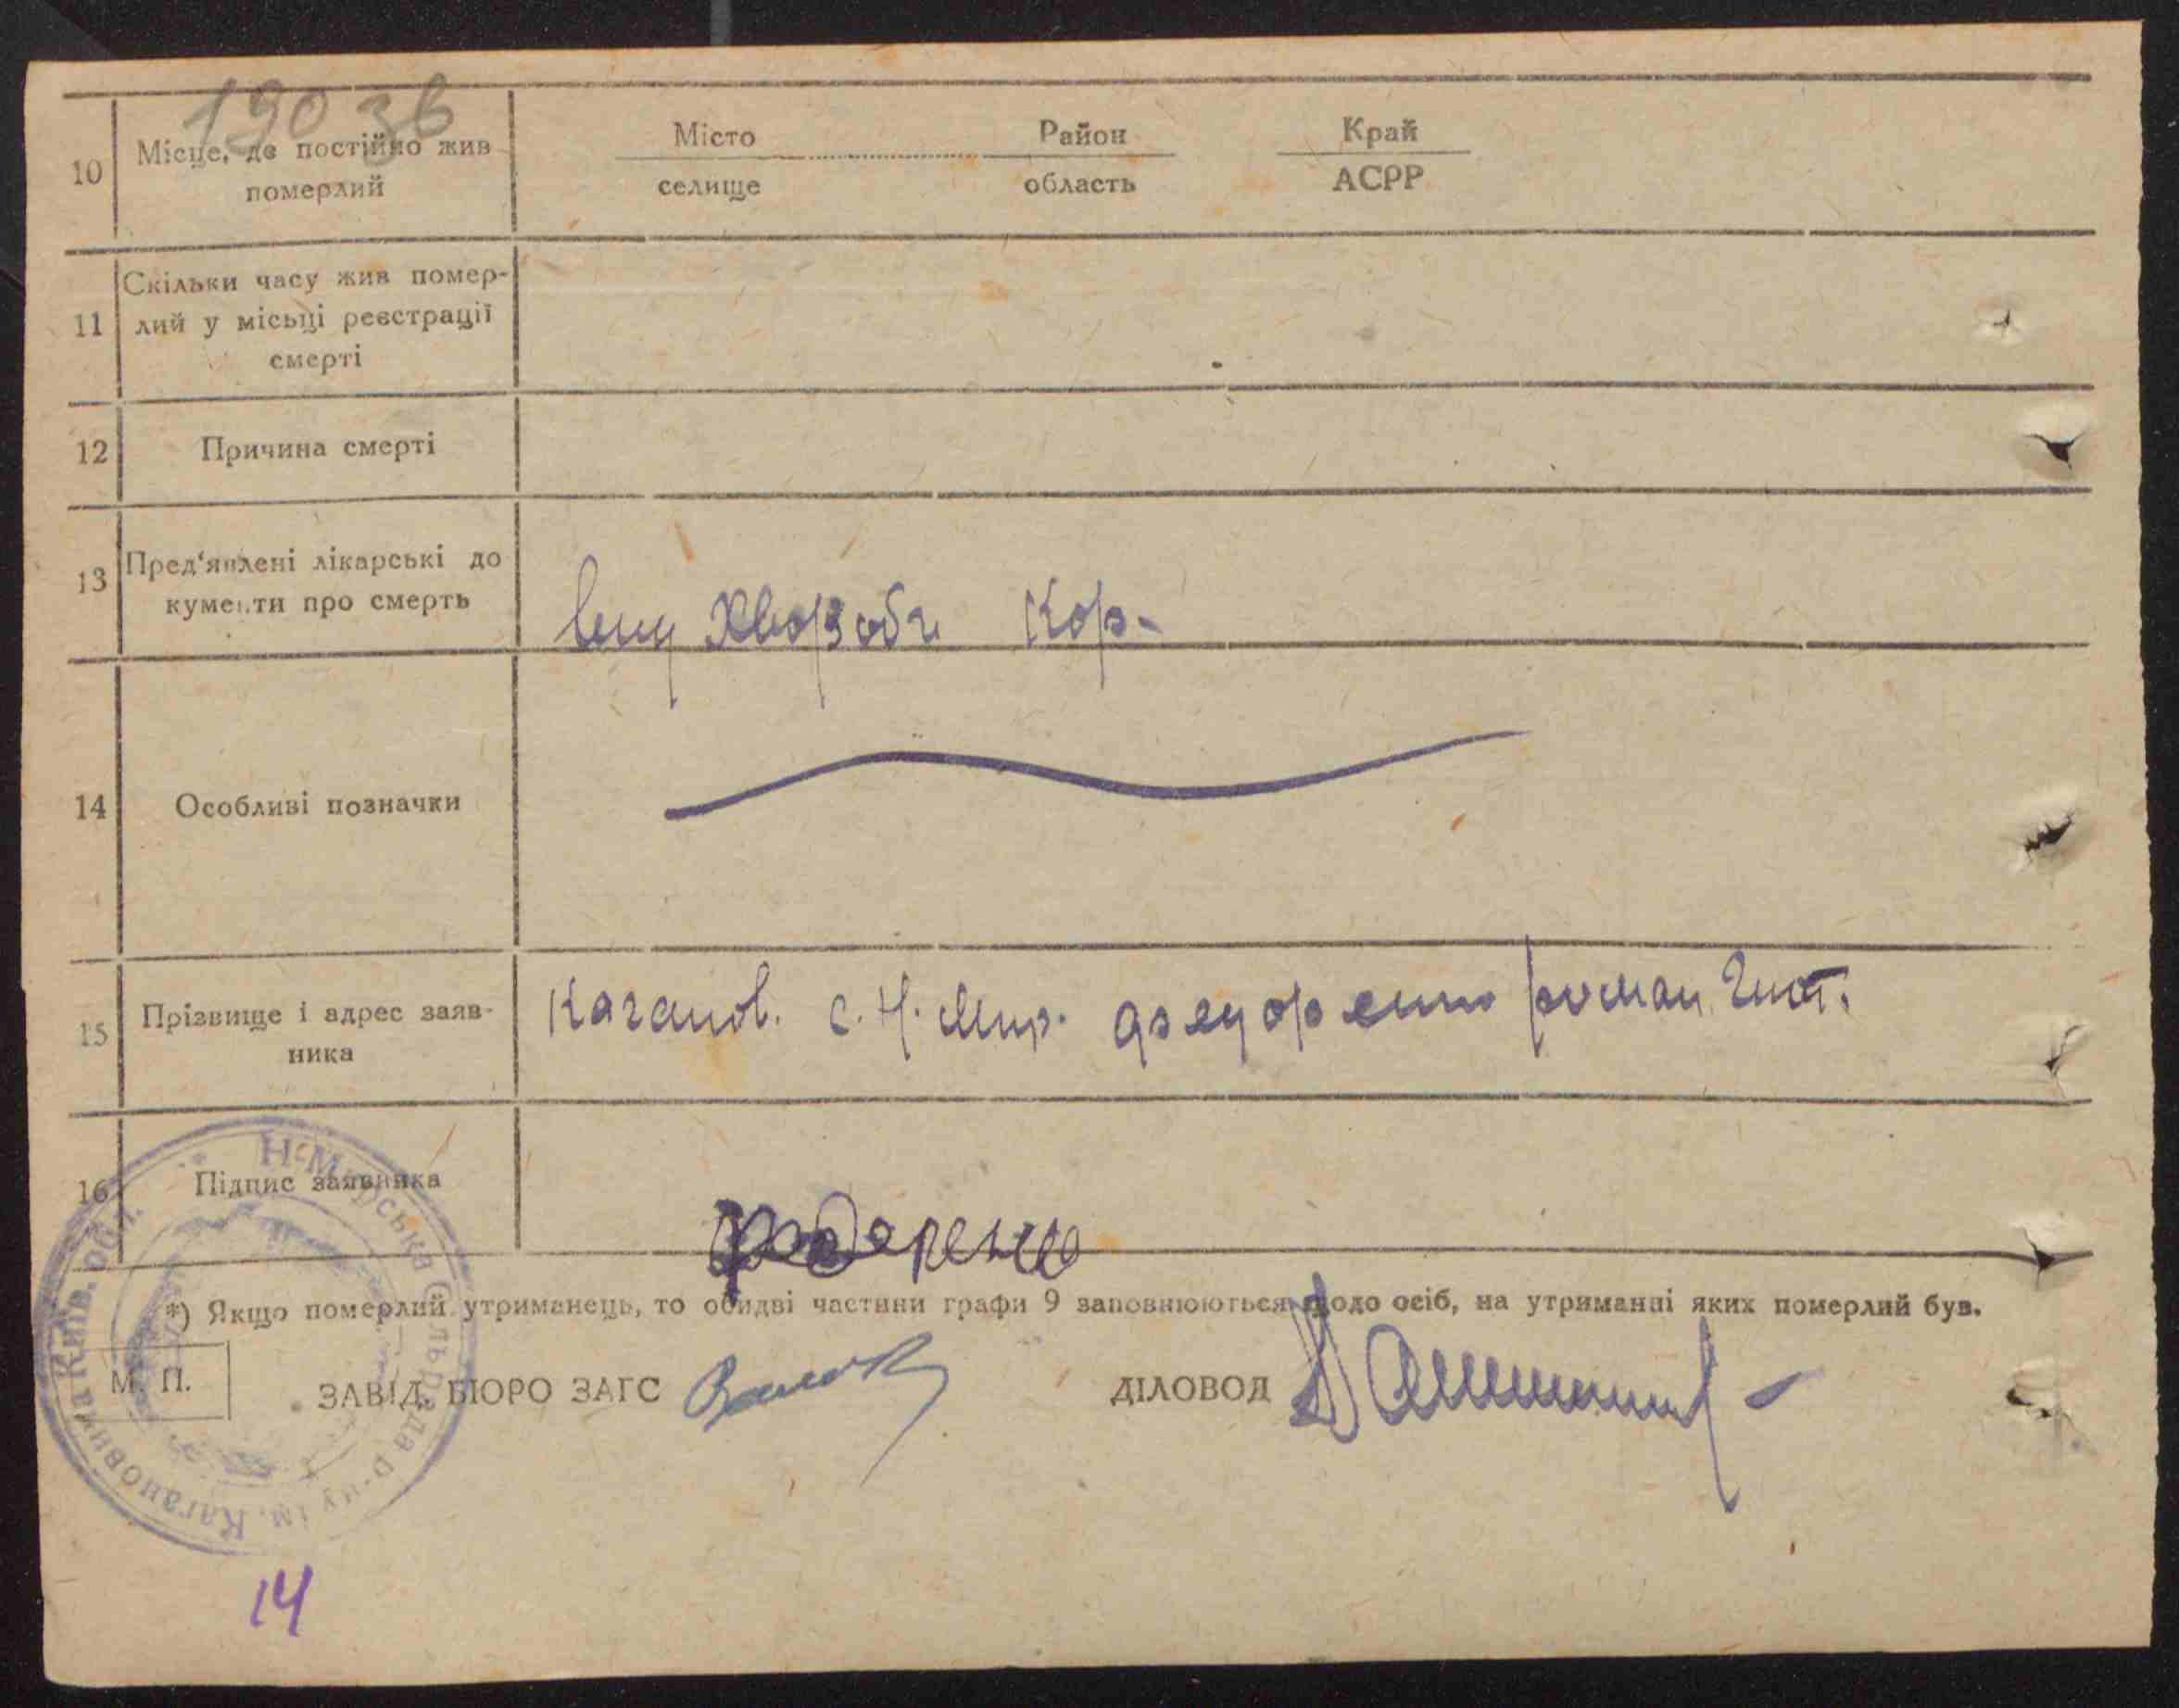 190 зв
10 Місце, де постійно жив померлий
Місто Район Край
селище область АСРР
11 Скільки часу жив помер-
лий у місьці реєстрації
смерті
12 Причина смерті
13 Пред'явлені лікарські до
кументи про смерть
Кор-
14 Особливі позначки
15 Прізвище і адрес заяв-
ника
Каганов. с. Н. Мир. роман
16 Підпис заявника
Федоренко
*) Якщо померлий утриманець, то обидві частини графи 9 заповнюються щодо осіб, на утриманні яких померлий був.
М. П.
ЗАВІД. БЮРО ЗАГС
ДІЛОВОД
Н-Мирська Сільрада р-ну ім. Кагановича Київ. обл.
14